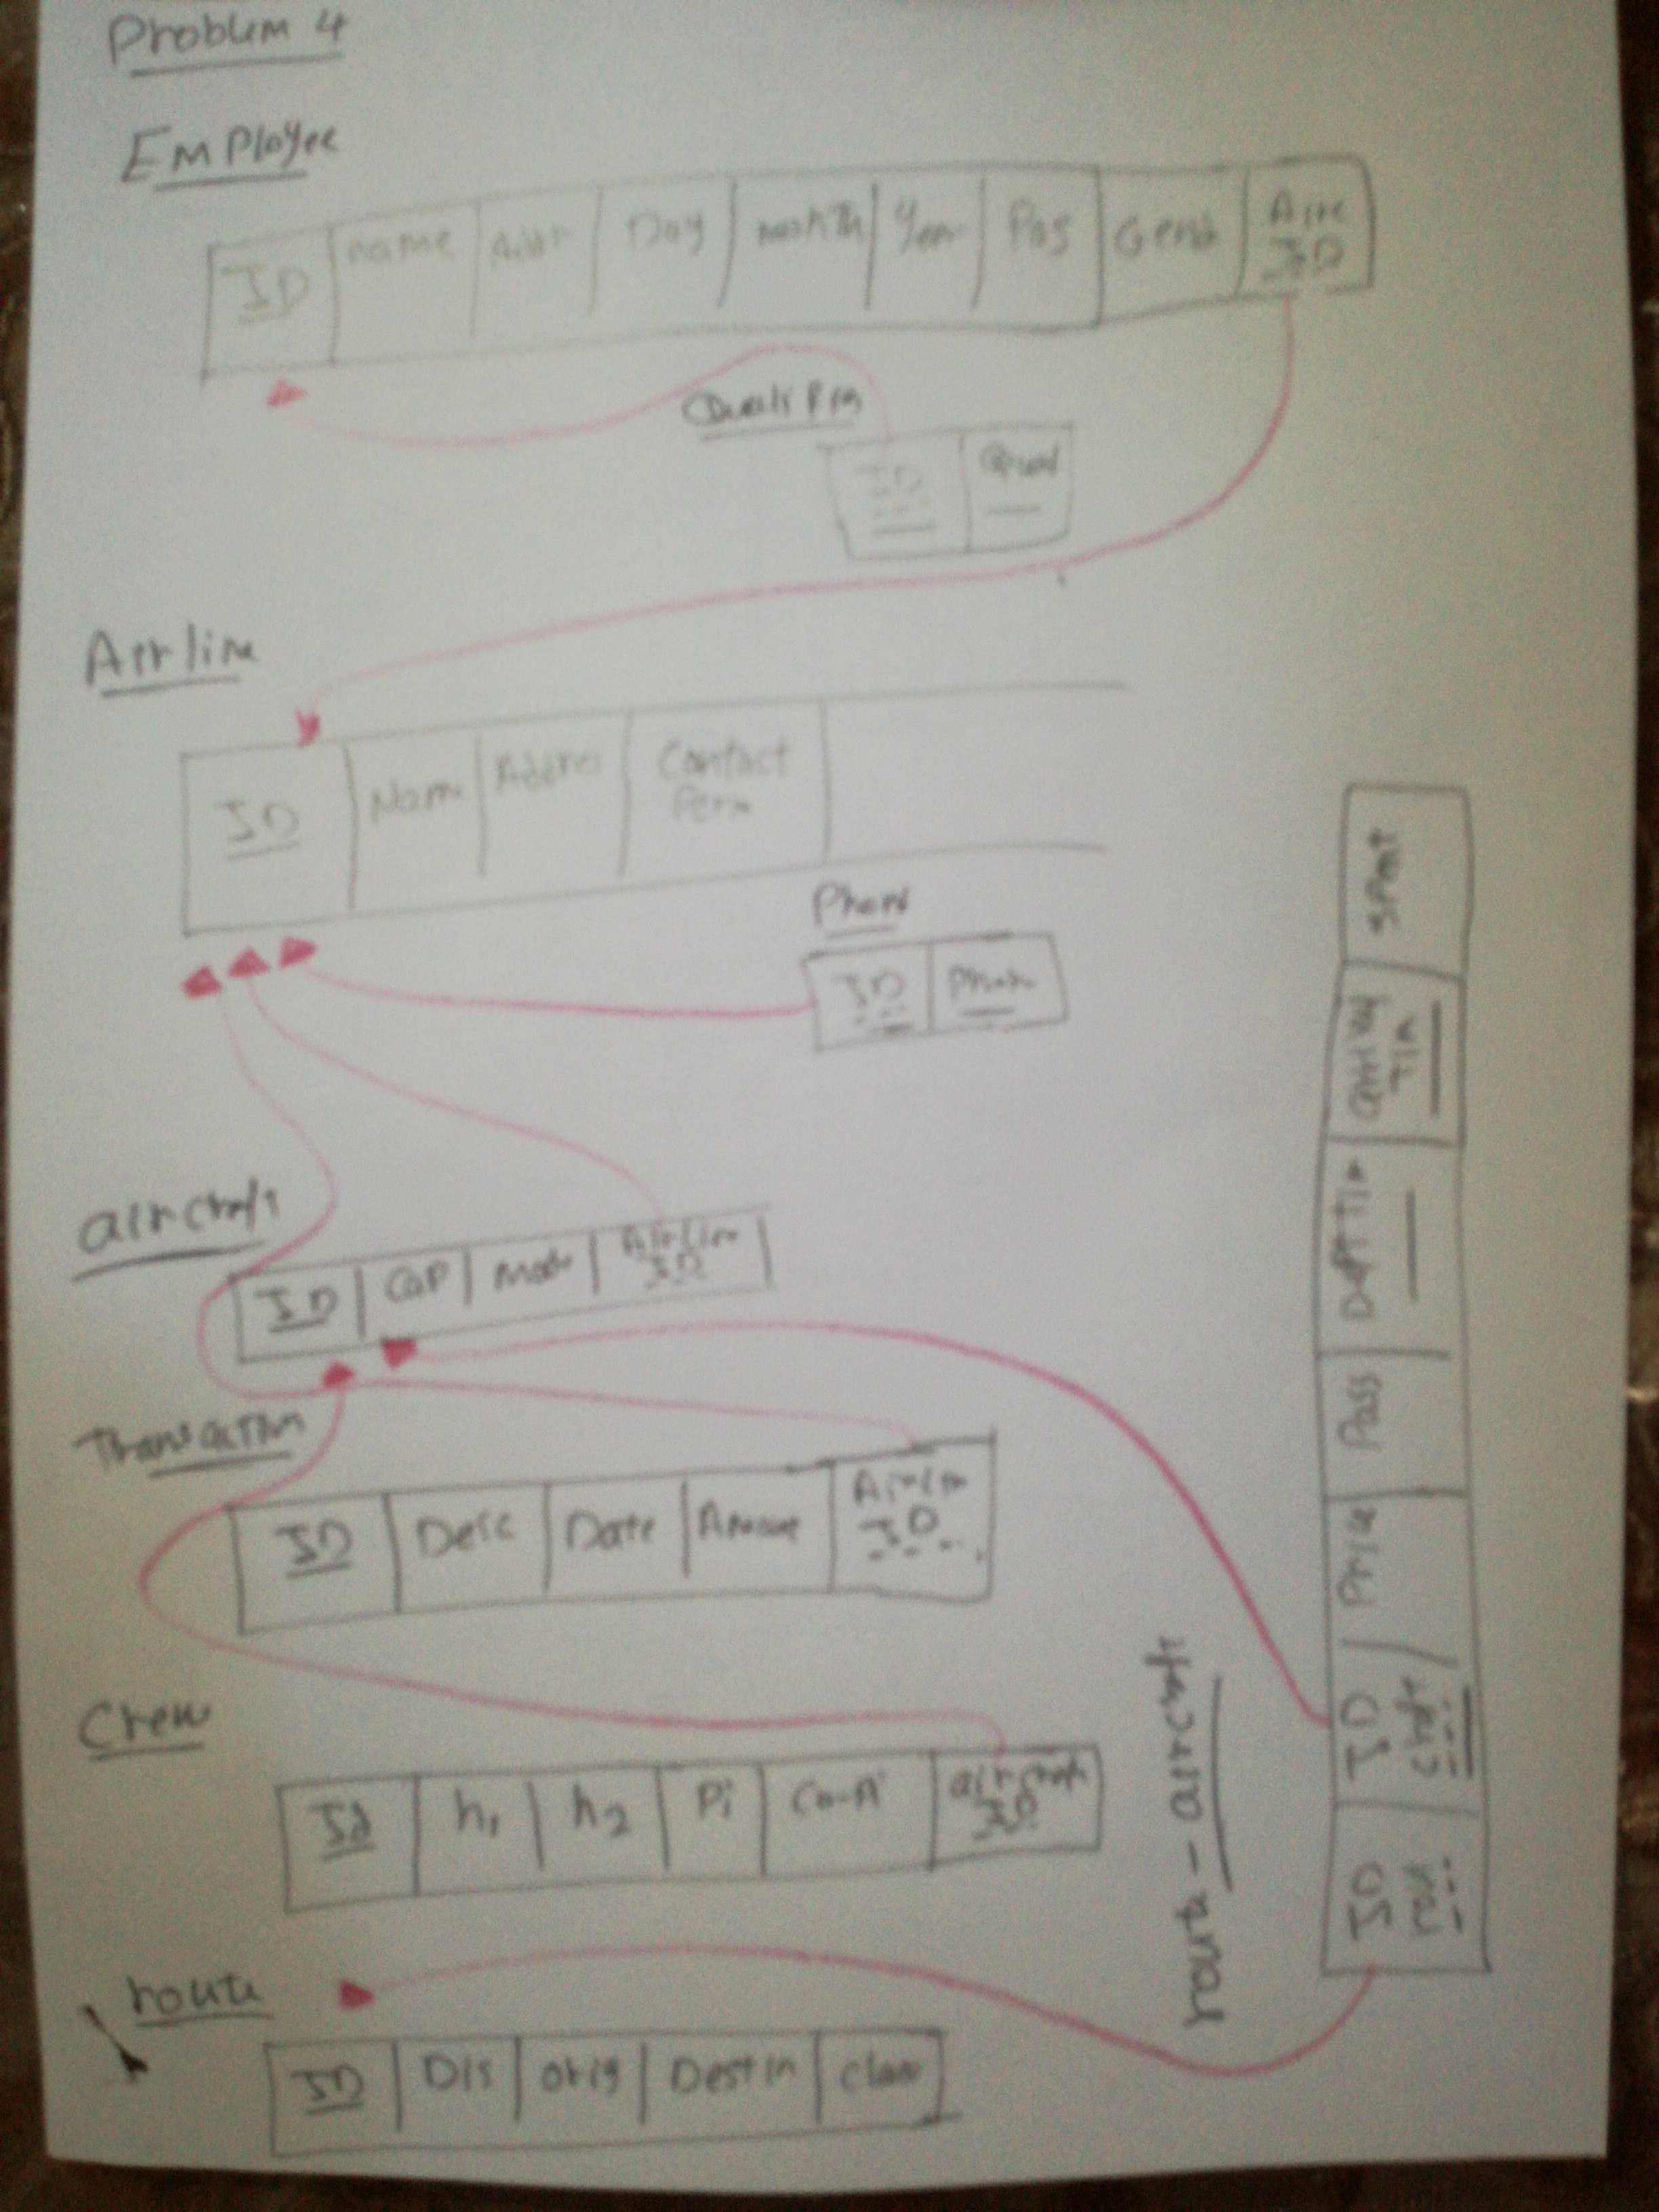 Problem 4
Employee
ID name Addr Day month Year Pos Gend Aire ID
ID Qual
Airline
ID Name Addres Contact Pers
Phone
ID Phone
aircraft
ID Cap Mode Airline ID
Transaction
ID Desc Date Amount Airlin ID
Crew
Id h1 h2 Pi aircraft ID
route
ID Dis orig Destin class
route - aircraft
ID craft ID Price Pass Dept Tim Tim spent